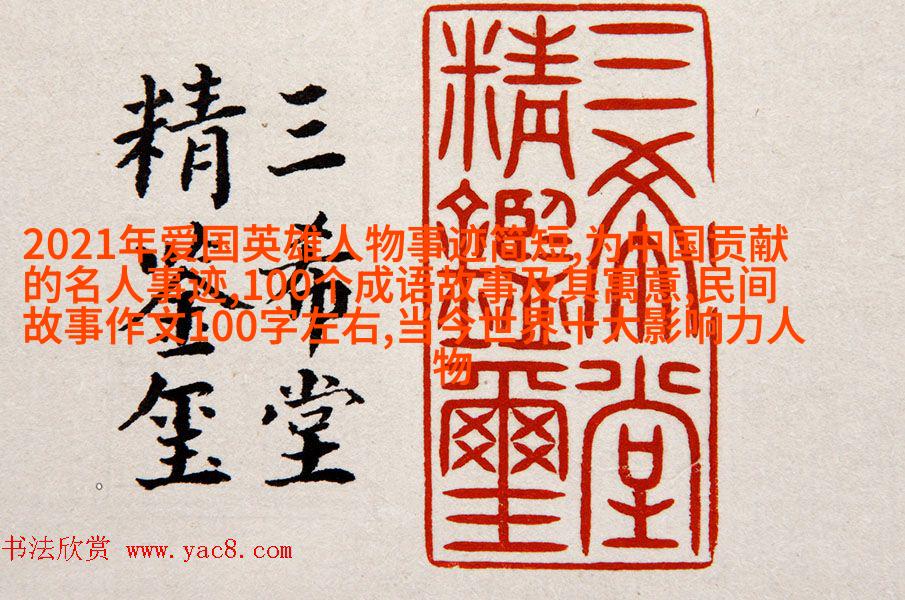 三希堂
精鑑璽
三希堂
精鉴玺
2021年爱国英雄人物事迹简短,为中国贡献
的名人事迹,100个成语故事及其寓意,民间
故事作文100字左右,当今世界十大影响力人
物
书法欣赏 www.yac8.com